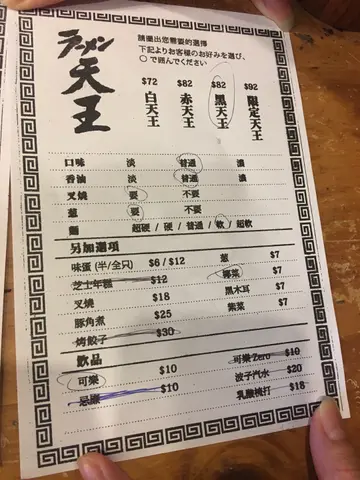 ラーメン天王
請圈出您需要的選擇
下記よりお客様のお好みを選び、
○で囲んでください
$72 $82 $82 $92
白天王 赤天王 黑天王 限定天王
口味 淡 普通 濃
香油 淡 普通 濃
叉燒 要 不要
葱 要 不要
麵 超硬 / 硬 / 普通 / 軟 / 超軟
另加選項
味蛋 (半/全只) $6 / $12 葱 $7
芝士年糕 $12 椰菜 $7
叉燒 $18 黑木耳 $7
豚角煮 $25 紫菜 $7
烤餃子 $30
飲品
可樂 $10 可樂Zero $10
忌廉 $10 波子汽水 $20
乳酸梳打 $18